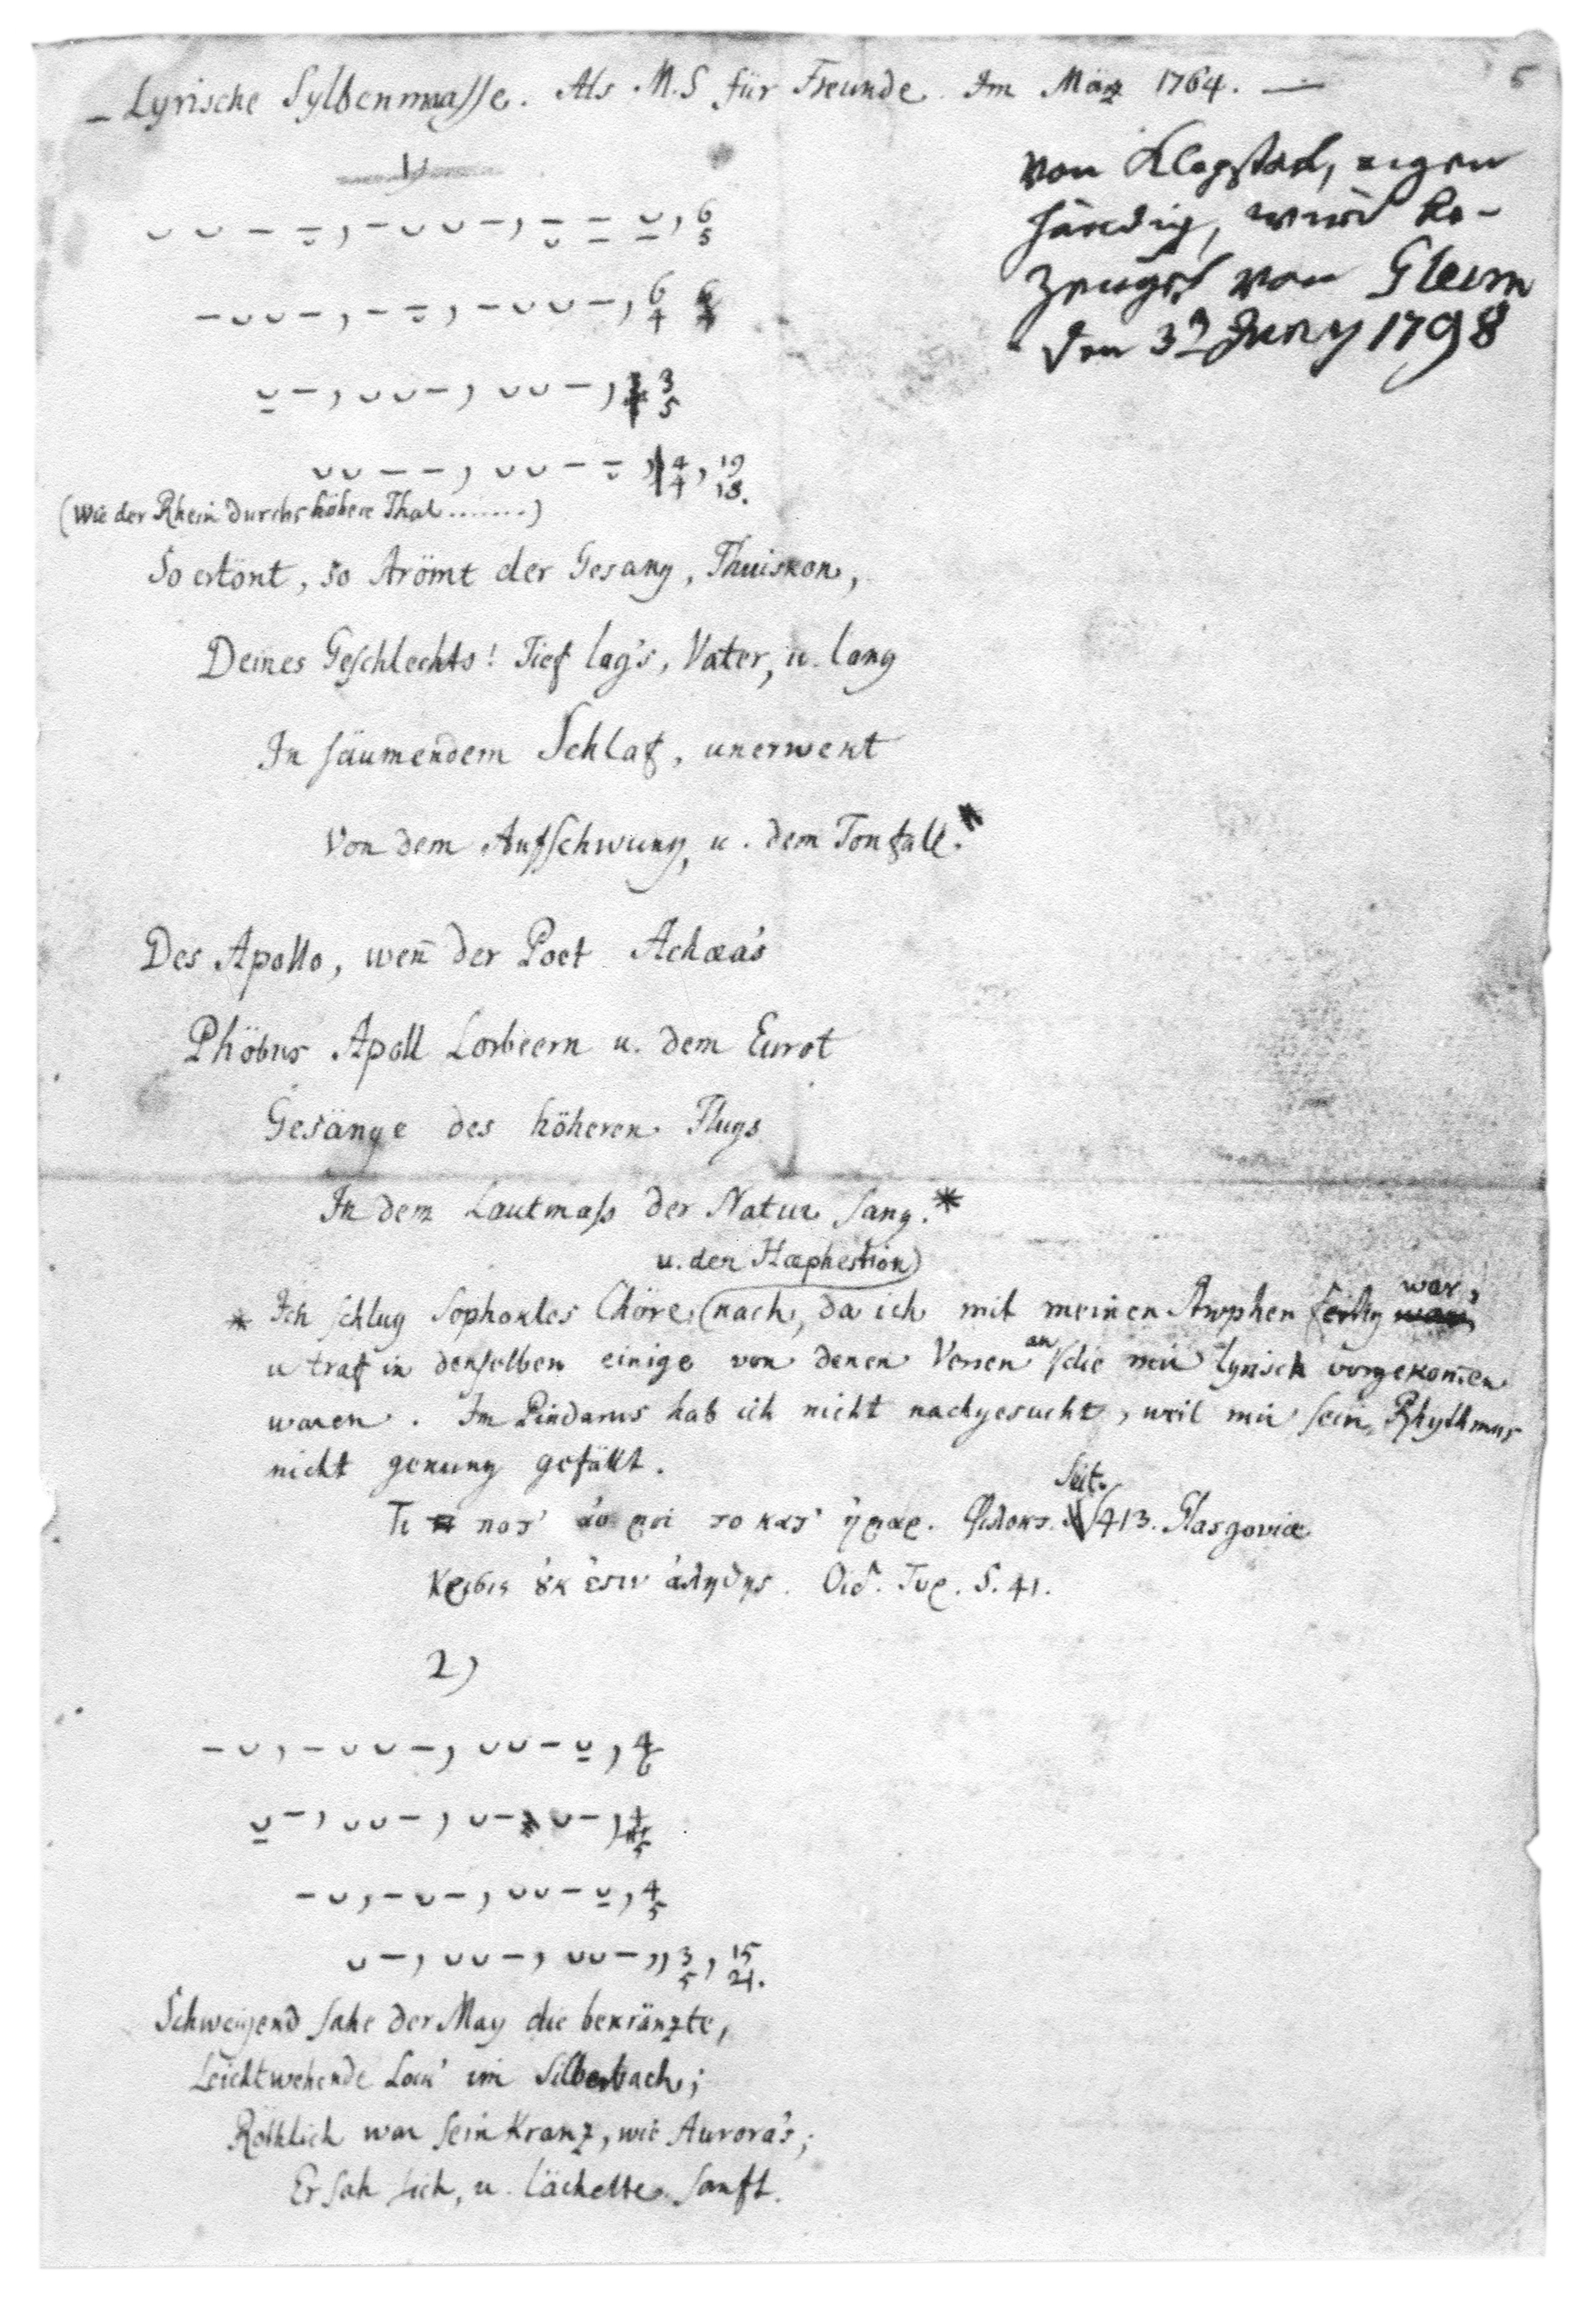 Lyrische Sylbenmaasse. Als M.S für Freunde. Im März 1764. —
5
von Klopstock, eigen
händig, wird be-
zeuget von Gleim
den 3ⁿ Juny 1798
1)
⏑ ⏑ – –, – ⏑ ⏑ –, – – ⏑, 6/5
– ⏑ ⏑ –, – –, – ⏑ ⏑ –, 6/4
⏑ –, ⏑ ⏑ –, ⏑ ⏑ –, 3/5
⏑ ⏑ – –, ⏑ ⏑ – –, 4/4, 19/18.
(Wie der Rhein durchs höhere Thal .......)
So ertönt, so strömt der Gesang, Thuiskon,
Deines Geschlechts! Tief lag's, Vater, u. lang
In säumendem Schlaf, unerwekt
Von dem Aufschwung, u. dem Tonfall.*
Des Apollo, weñ der Poet Achæa's
Phöbus Apoll Lorbeern u. dem Eurot
Gesänge des höheren Flugs
In dem Lautmass der Natur sang.*
u. den Hæphestion)
* Ich schlug Sophokles Chöre (nach, da ich mit meinen Strophen fertig war,
u traf in denselben einige von denen Versen an, die mir lyrisch vorgekom̄en
waren. Im Pindarus hab ich nicht nachgesucht, weil mir sein Rhythmus
nicht genung gefällt.
Τι ποτ' αυ μοι το κατ' ἠμαρ. Φιλοκτ. Seit. 413. Glasgoviæ
Κρισις ȣ̓κ ἐστιν ἀληθης. Οιδ. Τυρ. S. 41.
2)
– ⏑, – ⏑ ⏑ –, ⏑ ⏑ – ⏑, 4/6
⏑ –, ⏑ ⏑ –, ⏑ – ⏑ –, 4/5
– ⏑, – ⏑ –, ⏑ ⏑ – ⏑, 4/5
⏑ –, ⏑ ⏑ –, ⏑ ⏑ –,, 3/5, 15/21.
Schweigend sahe der May die bekränzte,
Leichtwehende Lock' im Silberbach;
Röthlich war sein Kranz, wie Aurora's;
Er sah sich, u. lächelte sanft.